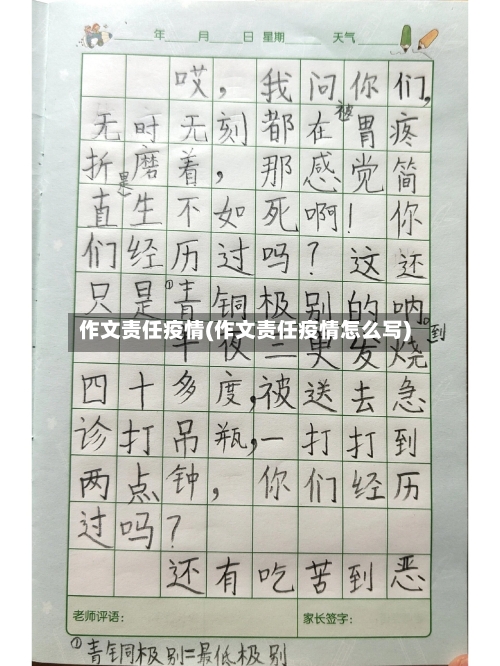 年 月 日 星期 天气
哎，我问你们，
无时无刻都在被胃疼
折磨着，那感觉简
直是生不如死啊！你
们经历过吗？这还
只是①青铜极别的呐。
作文责任疫情(作文责任疫情怎么写)
半夜三更发烧到
四十多度，被送去急
诊打吊瓶，一打打到
两点钟，你们经历
过吗？
还有吃苦到恶
老师评语： 家长签字：
①青铜极别=最低极别